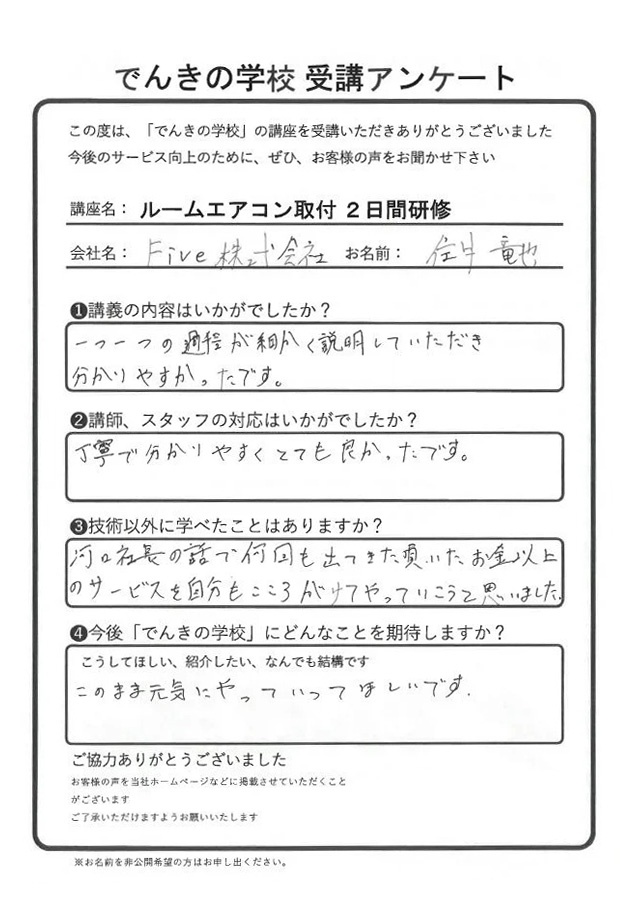 でんきの学校 受講アンケート
この度は、「でんきの学校」の講座を受講いただきありがとうございました
今後のサービス向上のために、ぜひ、お客様の声をお聞かせ下さい
講座名： ルームエアコン取付 2日間研修
会社名： Five 株式会社 お名前： 竜也
❶講義の内容はいかがでしたか？
一つ一つの過程が細かく説明していただき
分かりやすかったです。
❷講師、スタッフの対応はいかがでしたか？
丁寧で分かりやすくとても良かったです。
❸技術以外に学べたことはありますか？
河口社長の話で何回も出てきた頂いたお金以上
のサービスを自分もこころがけてやっていこうと思いました。
❹今後「でんきの学校」にどんなことを期待しますか？
こうしてほしい、紹介したい、なんでも結構です
このまま元気にやっていってほしいです.
ご協力ありがとうございました
お客様の声を当社ホームページなどに掲載させていただくこと
がございます
ご了承いただけますようお願いいたします
※お名前を非公開希望の方はお申し出ください。